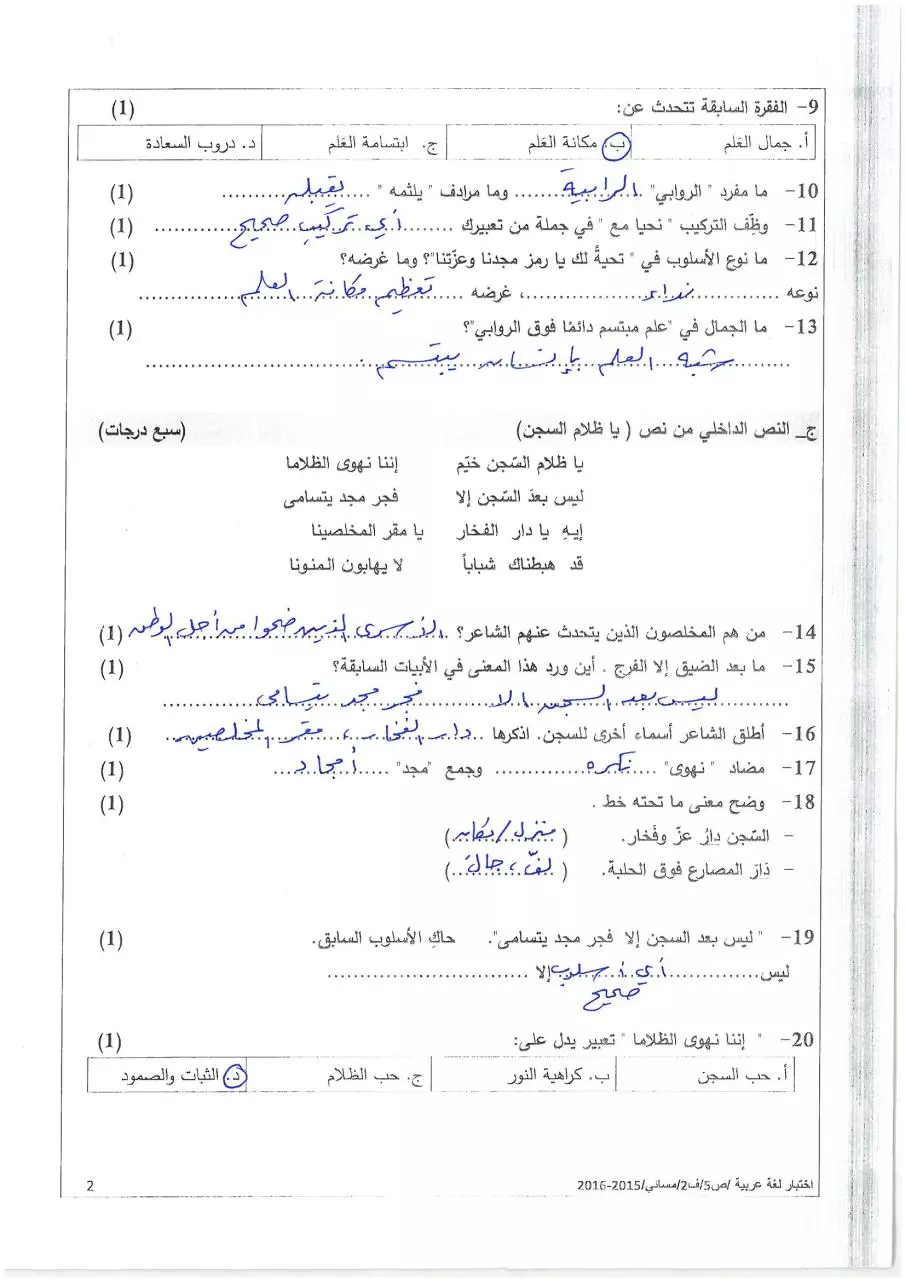 9- الفقرة السابقة تتحدث عن: (1)
أ. جمال العَلم ب. مكانة العَلم ج. ابتسامة العَلم د. دروب السعادة
10- ما مفرد " الروابي" ...الرابية... وما مرادف " يلثمه " ...يقبله... (1)
11- وظّف التركيب " نحيا مع " في جملة من تعبيرك ...أي تركيب صحيح... (1)
12- ما نوع الأسلوب في " تحيةً لك يا رمز مجدنا وعزّتنا"؟ وما غرضه؟ (1)
نوعه ...نداء...، غرضه ...تعظيم مكانة العلم...
13- ما الجمال في "علم مبتسم دائمًا فوق الروابي"؟ (1)
...شبه العلم بإنسان يبتسم...
ج_ النص الداخلي من نص ( يا ظلام السجن) (سبع درجات)
يا ظلام السّجن خيّم إننا نهوى الظلاما
ليس بعدَ السّجن إلا فجر مجد يتسامى
إيهِ يا دار الفخار يا مقر المخلصينا
قد هبطناك شباباً لا يهابون المنونا
14- من هم المخلصون الذين يتحدث عنهم الشاعر؟ الأسرى الذين ضحوا من أجل الوطن (1)
15- ما بعد الضيق إلا الفرج . أين ورد هذا المعنى في الأبيات السابقة؟ (1)
ليس بعد السجن إلا فجر مجد يتسامى
16- أطلق الشاعر أسماء أخرى للسجن. اذكرها ...دار الفخار، مقر المخلصين... (1)
17- مضاد " نهوى" ...نكره... وجمع "مجد" ...أمجاد... (1)
18- وضح معنى ما تحته خط . (1)
- السّجن دارُ عزّ وفَخار. (منزل / مكان)
- دَارَ المصارع فوق الحلبة. (لفّ، جال)
19- " ليس بعد السجن إلا فجر مجد يتسامى". حاكِ الأسلوب السابق. (1)
ليس ...أي أسلوب إلا ...
صحيح
20- " إننا نهوى الظلاما " تعبير يدل على: (1)
أ. حب السجن ب. كراهية النور ج. حب الظلام د. الثبات والصمود
اختبار لغة عربية /ص5/ف2/مسائي/2015-2016 2